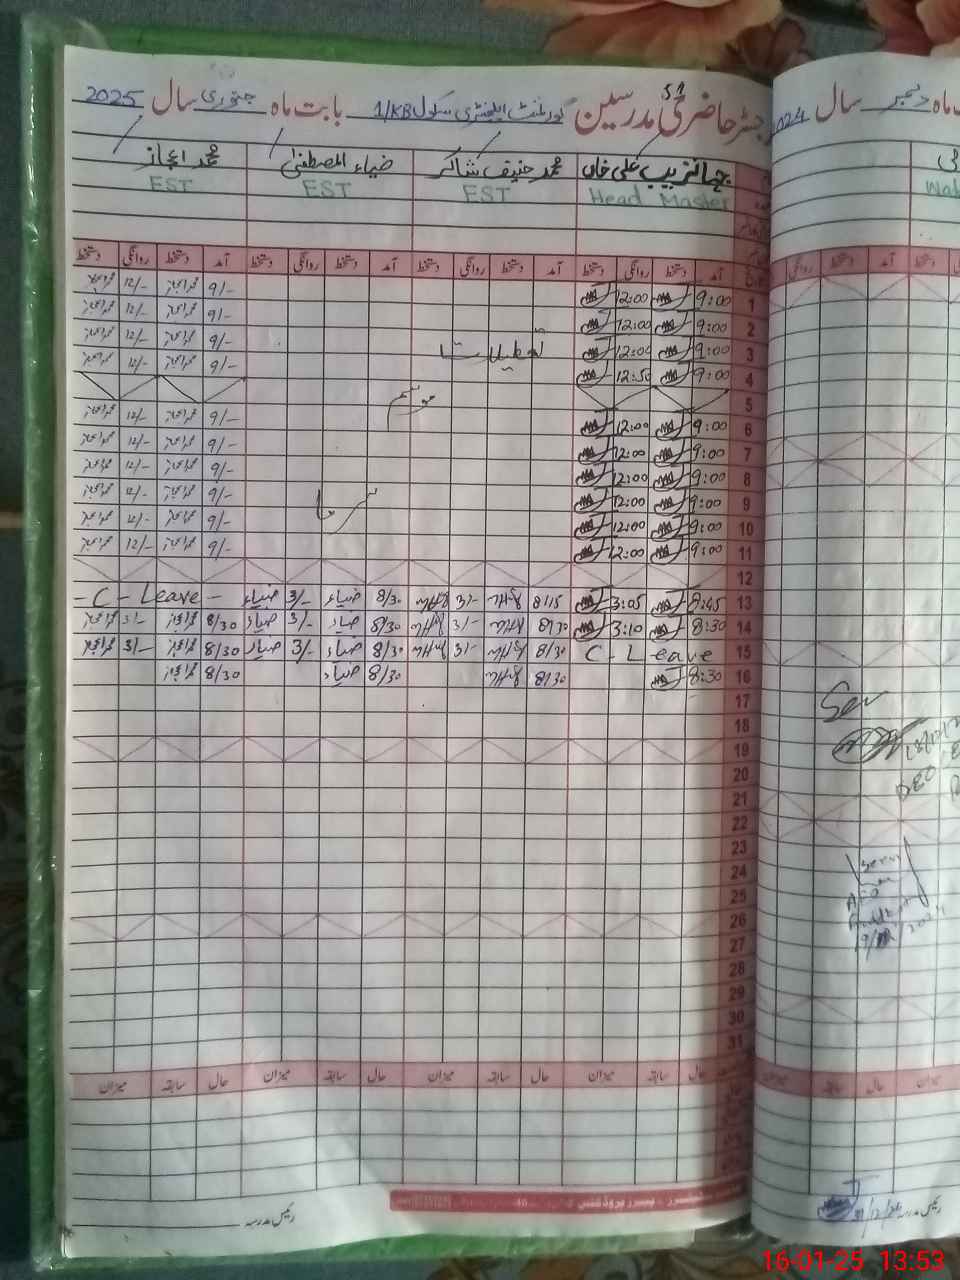 رجسٹر حاضری مدرسین گورنمنٹ ایلیمنٹری سکول 1/KB بابت ماہ جنوری سال 2025
جہانزیب علی خاں محمد حنیف شاکر ضیاء المصطفیٰ محمد اعجاز
Head Master EST EST EST
آمد دستخط روانگی دستخط آمد دستخط روانگی دستخط آمد دستخط روانگی دستخط آمد دستخط روانگی دستخط
1 9:00 12:00 9/- محمد اعجاز 12/-
2 9:00 12:00 9/- محمد اعجاز 12/- محمد اعجاز
3 9:00 12:00 تعطیلات 9/- محمد اعجاز 12/- محمد اعجاز
4 9:00 12:50 9/- محمد اعجاز 12/- محمد اعجاز
5
موسم
6 9:00 12:00 9/- محمد اعجاز 12/- محمد اعجاز
7 9:00 12:00 9/- محمد اعجاز 12/- محمد اعجاز
8 9:00 12:00 9/- محمد اعجاز 12/- محمد اعجاز
9 9:00 12:00 سرما 9/- محمد اعجاز 12/- محمد اعجاز
10 9:00 12:00 9/- محمد اعجاز 12/- محمد اعجاز
11 9:00 12:00 9/- محمد اعجاز 12/- محمد اعجاز
12
13 8:45 3:05 8/15 3/- 8/30 ضیاء 3/- ضیاء - C - Leave -
14 8:30 3:10 8/30 3/- 8/30 ضیاء 3/- ضیاء 8/30 محمد اعجاز 3/- محمد اعجاز
15 C - Leave 8/30 3/- 8/30 ضیاء 3/- ضیاء 8/30 محمد اعجاز 3/- محمد اعجاز
16 8:30 8/30 8/30 ضیاء 8/30 محمد اعجاز
17
18
19
20
21
22
23
24
25
26
27
28
29
30
31
حال سابقہ میزان حال سابقہ میزان حال سابقہ میزان حال سابقہ میزان
رئیس مدرسہ
ماہ دسمبر سال 2024
آمد دستخط روانگی
Sen
DEO
حال سابقہ میزان
31/12/24
رئیس مدرسہ
16-01-25 13:53